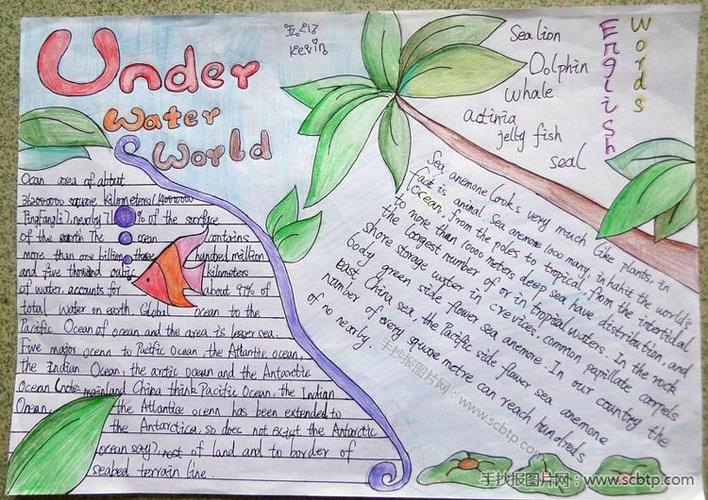 Under
Water
World
五、(2)
Kevin
Sea lion
Dolphin
whale
actinia
jelly fish
seal
English
Words
Ocan area of about
square kilometers(
Pingfangli), nearly 7 % of the surface
of the earth The ocean contains
more than one billion three hundred million
and five thousand cubic kilometers
of water, accounts for about 97% of
total water on earth. Global ocean to the
Pacific Ocean of ocean and the area is lesser sea.
Five major ocenn to Pacific Ocean, the Atlantic ocean,
the Indian Ocean, the arctic ocean and the Antarctic
Ocean (note mainland China think Pacific Ocean, the Indian
Ocean, the Atlantice ocenn has been extended to
the Antarctica, so does not exist the Antarctic
ocean say), most of land and to border of
seabed terrain line.
Sea anemone looks very much like plants, in
fact is animal Sea anemone 1000 many, inhabit the world's
ocean, from the poles to tropical, from the intertidal
to more than 10000 meters deep sea have distribution, and
the longest number of or in tropical waters. In the rock
shore storage water in crevices, common papillate carpels
body green side flower sea anemone. In our country the
East China sea, the Pacific side flower sea anemone
number of every square metre can reach hundreds
of no nearly.
手抄报图片网:www.scbtp.com
手抄报图片网:www.scbtp.com